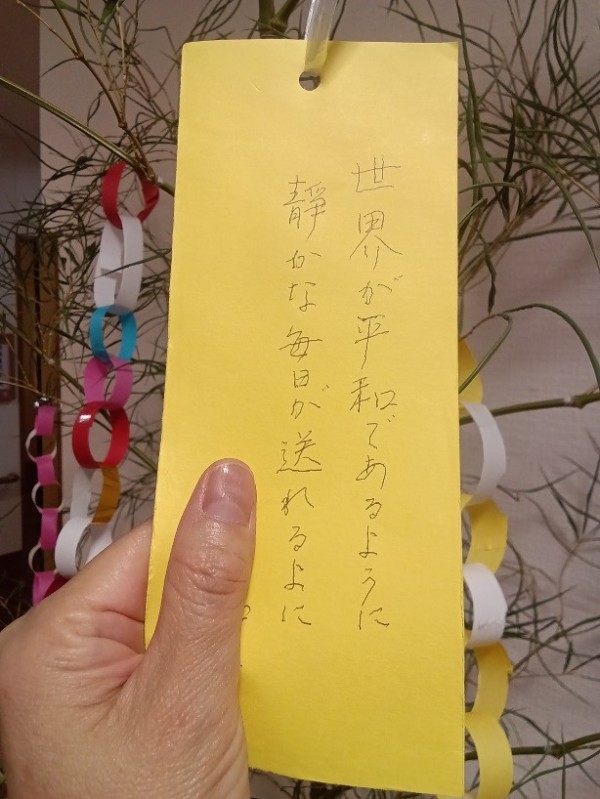 世界が平和であるように
静かな毎日が送れるよに